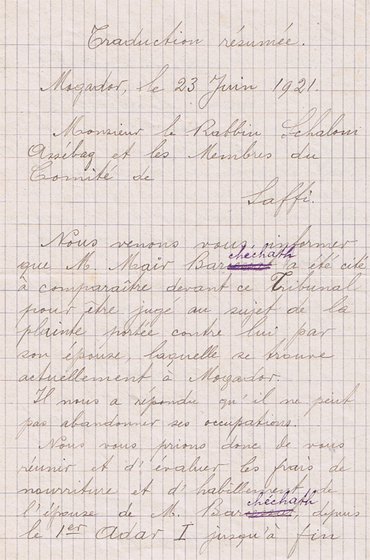 Traduction résumée.
Mogador, le 23 Juin 1921.
Monsieur le Rabbin Schaloum
Assébag et les Membres du
Comité de
Saffi.
Nous venons vous informer
que M. Maïr Bar chechath a été cité
à comparaître devant ce Tribunal
pour être jugé au sujet de la
plainte portée contre lui par
son épouse, laquelle se trouve
actuellement, à Mogador.
Il nous a répondu qu'il ne peut
pas abandonner ses occupations.
Nous vous prions donc de vous
réunir et d'évaluer les frais de
nourriture et d'habillement de
l'épouse de M. Bar chéchath, depuis
le 1er Adar I jusqu'à fin